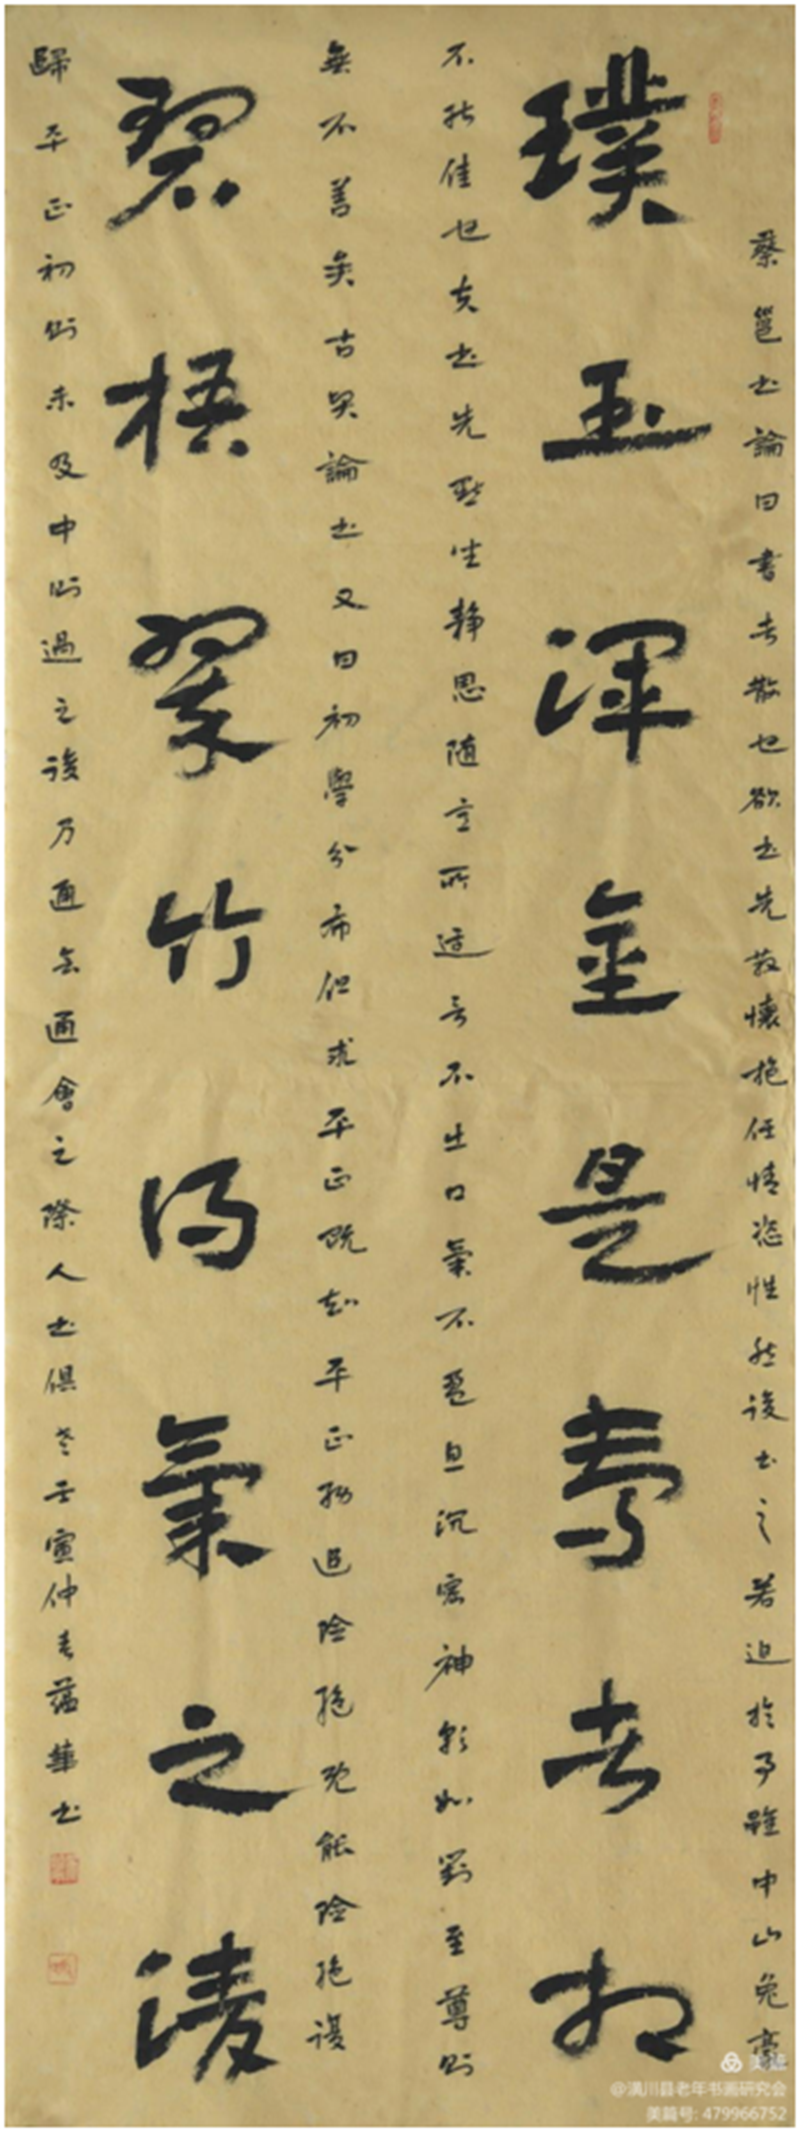 蔡邕书論曰書者散也欲书先散懷抱任情恣性然後书之若迫於事雖中山兔毫
璞玉渾金是壽者相
不能佳也夫书先默坐静思随意所適言不出口氣不盈息沉密神彩如對至尊則
無不善矣古人論书又曰初學分布但求平正既知平正務追险絕既能险絕復
碧梧翠竹得氣之清
歸平正初則未及中則過之後乃通会通會之際人书俱老壬寅仲春蕴華书
美篇
@潢川县老年书画研究会
美篇号: 479966752